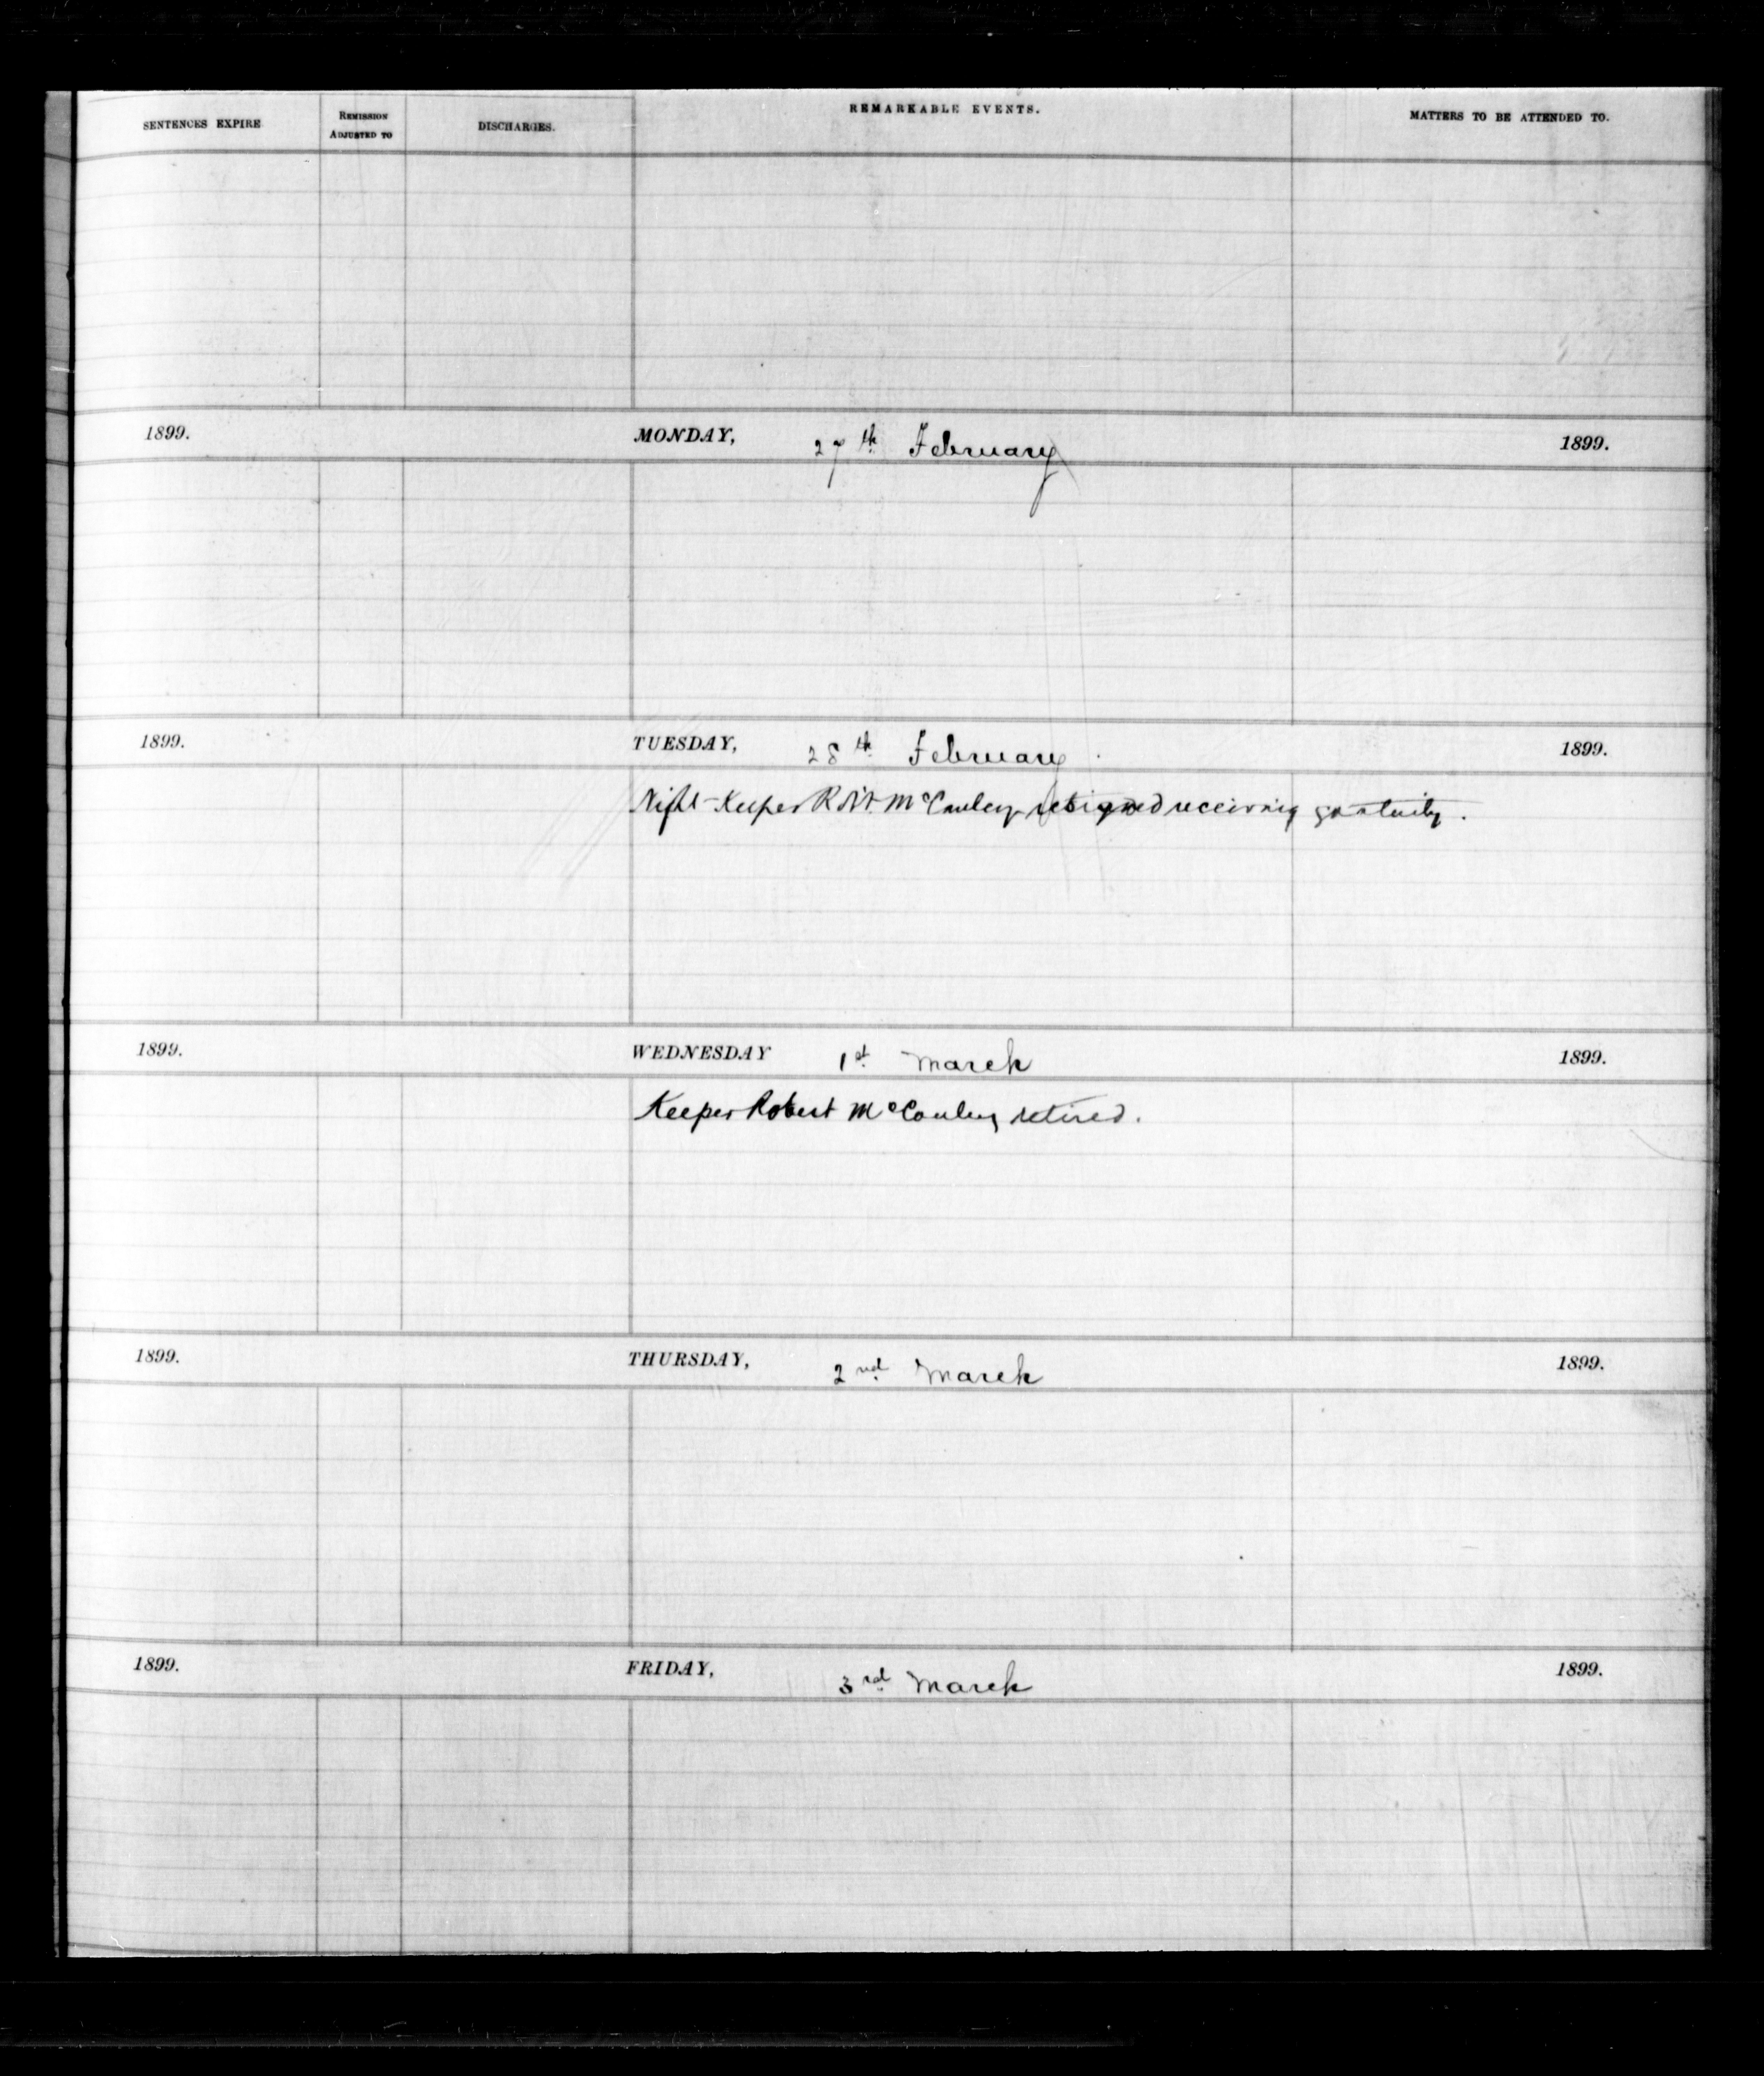 SENTENCES EXPIRE REMISSION ADJUSTED TO DISCHARGES. REMARKABLE EVENTS. MATTERS TO BE ATTENDED TO.
1899. MONDAY, 27th February 1899.
1899. TUESDAY, 28th February 1899.
Night-Keeper Robt. McCauley resigned receiving gratuity.
1899. WEDNESDAY 1st March 1899.
Keeper Robert McCauley retired.
1899. THURSDAY, 2nd March 1899.
1899. FRIDAY, 3rd March 1899.